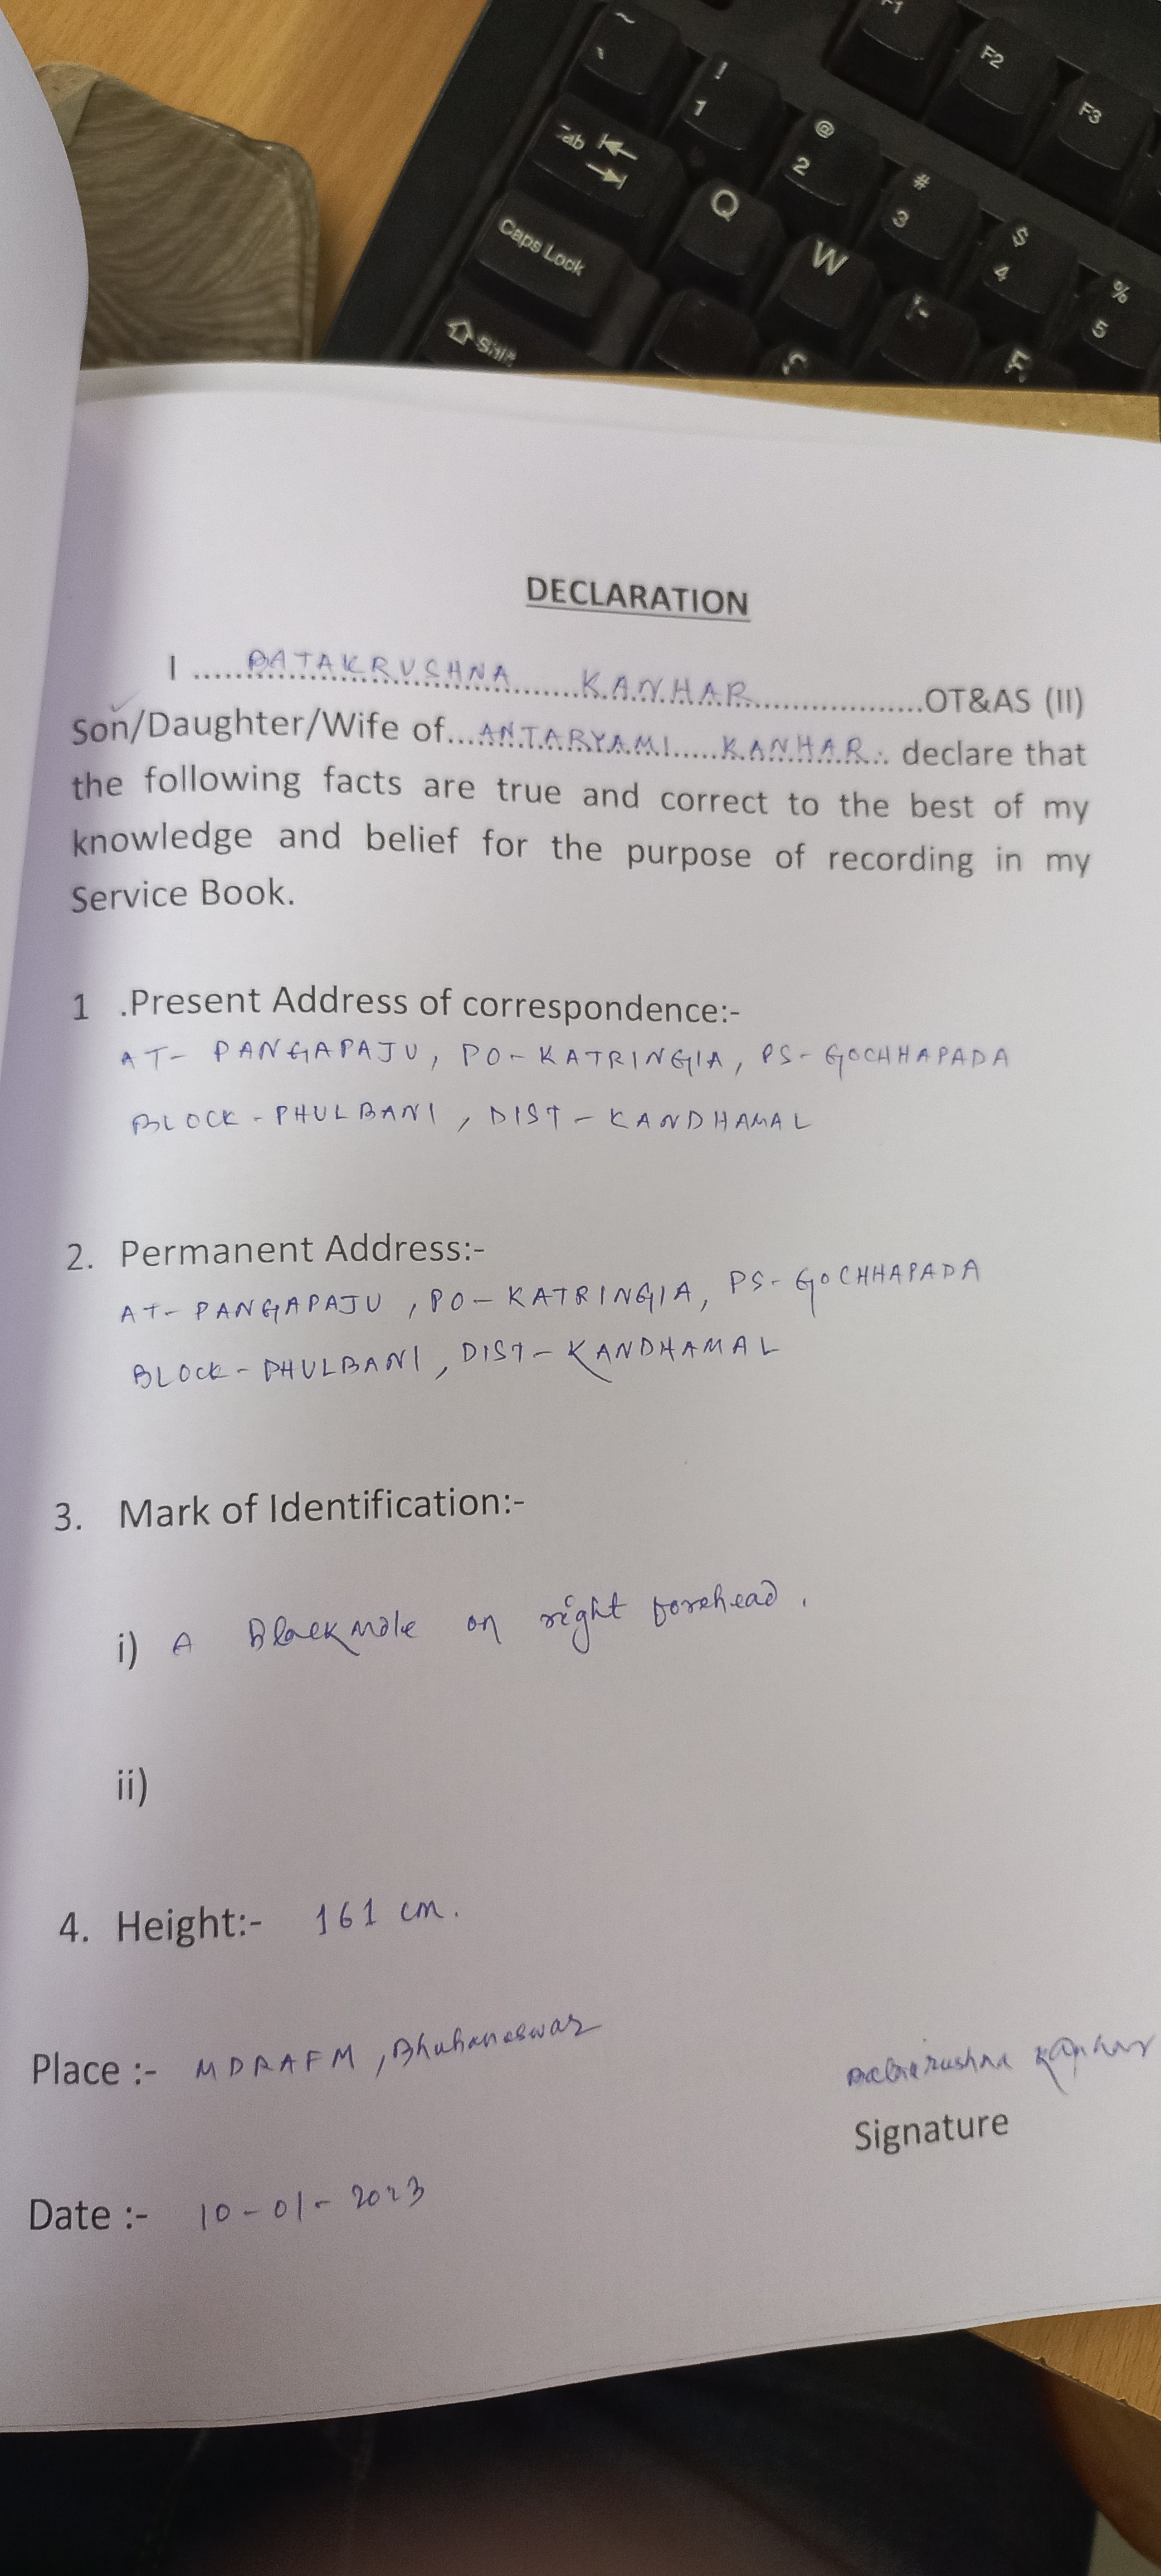 ~
`
!
1
@
2
#
3
$
4
%
5
F1
F2
F3
Tab
Q
W
Caps Lock
Shift
DECLARATION
I .....BATAKRUSHNA.......KANHAR.................OT&AS (II)
Son/Daughter/Wife of...ANTARYAMI.....KANHAR.. declare that
the following facts are true and correct to the best of my
knowledge and belief for the purpose of recording in my
Service Book.
1 .Present Address of correspondence:-
AT- PANGAPAJU, PO- KATRINGIA, PS- GOCHHAPADA
BLOCK - PHULBANI, DIST - KANDHAMAL
2. Permanent Address:-
AT- PANGAPAJU, PO- KATRINGIA, PS- GOCHHAPADA
BLOCK - PHULBANI, DIST- KANDHAMAL
3. Mark of Identification:-
i) A Black mole on right forehead.
ii)
4. Height:- 161 cm.
Place :- MDRAFM, Bhubaneswar
Batakrushna Kanhar
Signature
Date :- 10-01-2023